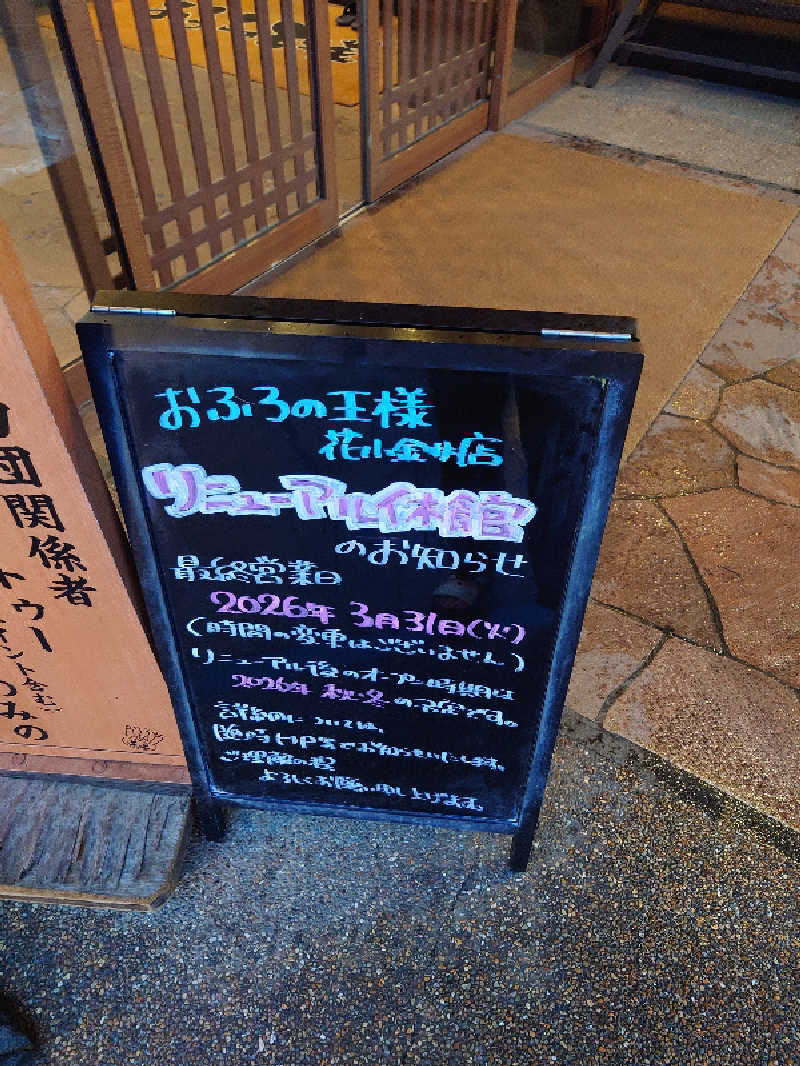 おふろの王様
花小金井店
リニューアル休館
のお知らせ
最終営業日
2026年 3月31日(火)
(時間の変更はございません)
リニューアル後のオープン時期は
2026年 秋・冬の予定です。
詳細については、
随時HP等でお知らせいたします。
ご理解の程
よろしくお願い申し上げます
団関係者
トゥー